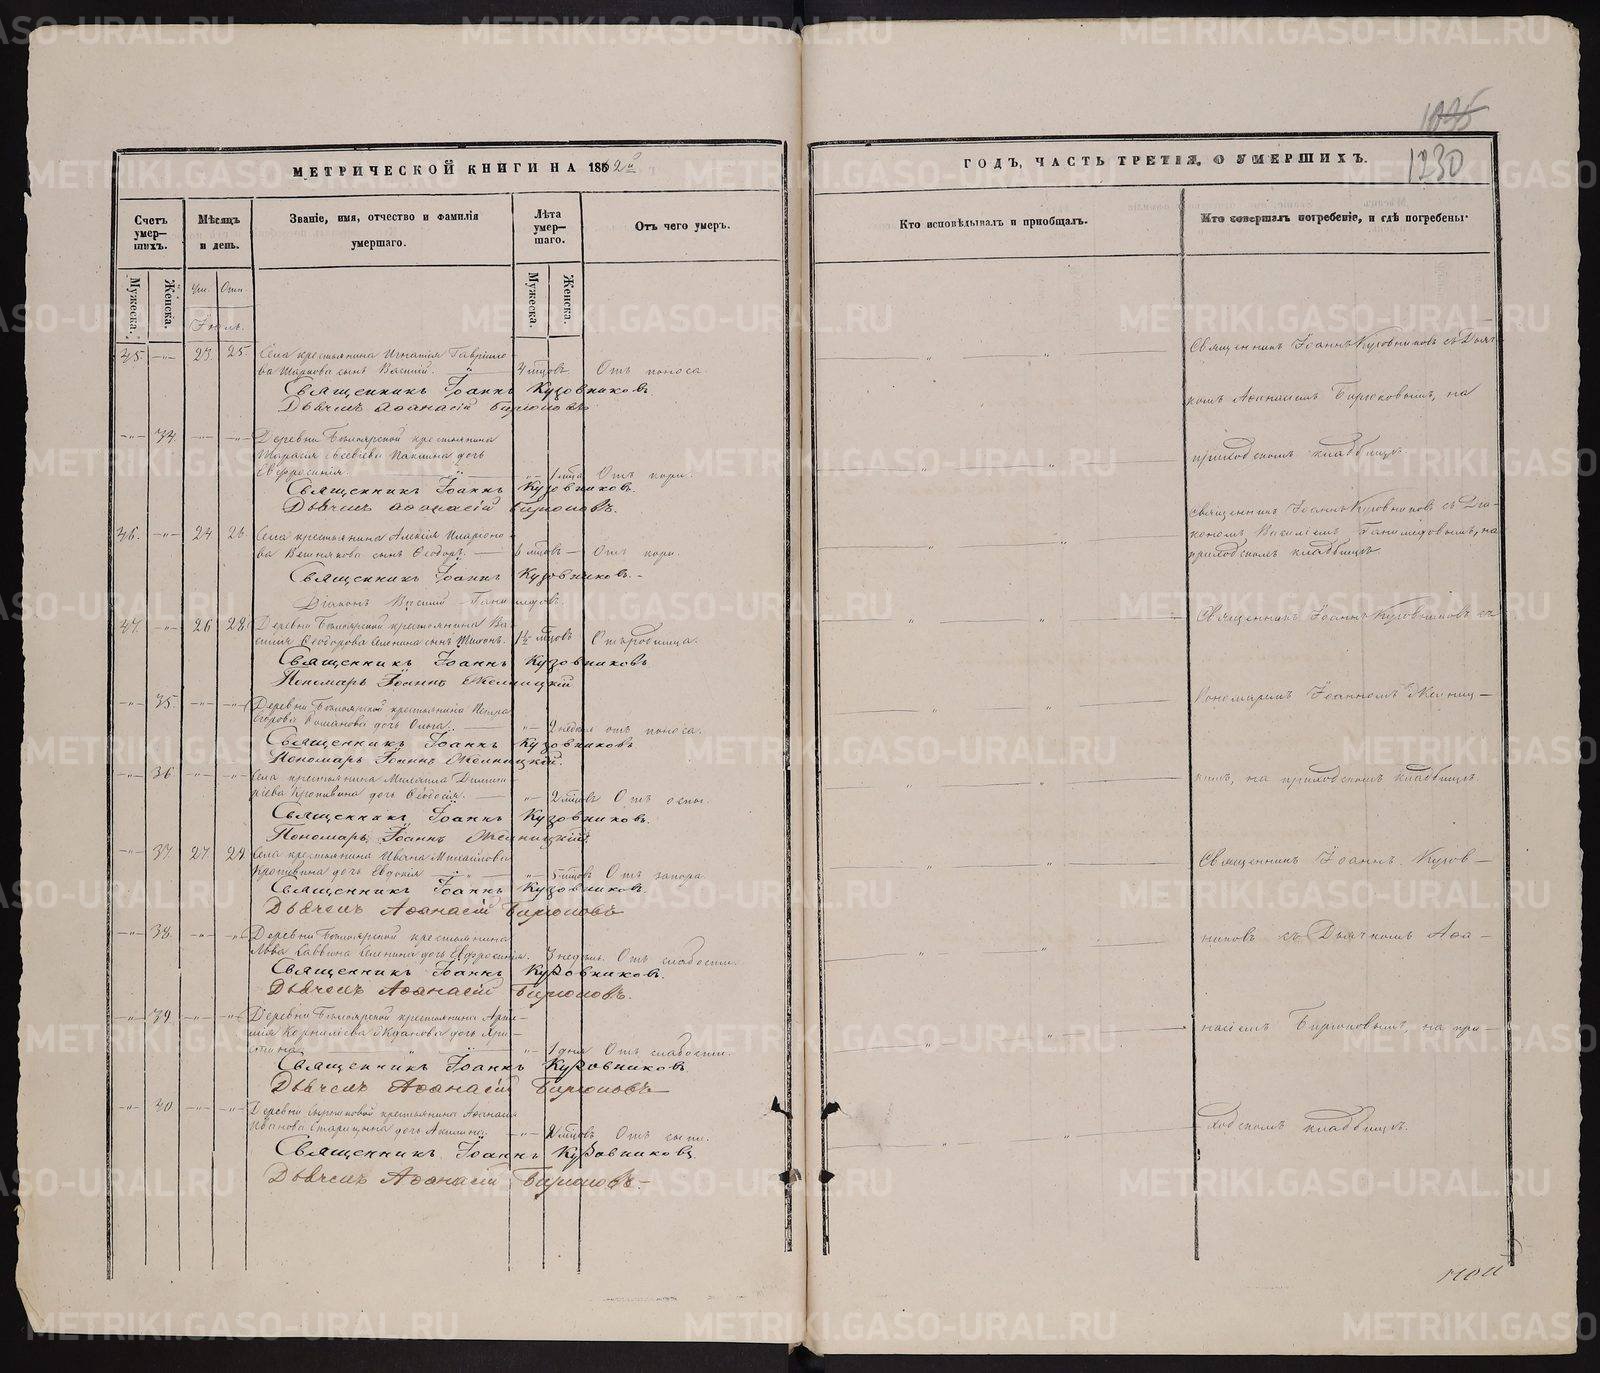 1235
1230
МЕТРИЧЕСКОЙ КНИГИ НА 1862й
ГОДЪ, ЧАСТЬ ТРЕТІЯ, О УМЕРШИХЪ.
Счетъ умер-шихъ.
Мѣсяцъ и день.
Званіе, имя, отчество и фамилія умершаго.
Лѣта умер-шаго.
Отъ чего умеръ.
Кто исповѣдывалъ и пріобщалъ.
Кто совершалъ погребеніе, и гдѣ погребены.
Мужеска.
Женска.
Ум.
Отп.
Мужеска.
Женска.
Іюль.
35. 23. 25. Села крестьянина Игнатія Гаврило-
ва сынъ Василій. Отъ поноса.
Священникъ Іоаннъ Кузовниковъ
Дьячекъ Аѳанасій Бирюковъ
Священникъ Іоаннъ Кузовниковъ съ Дьяч-
комъ Аѳанасіемъ Бирюковымъ, на
приходскомъ кладбищѣ.
34. крестьянина
дочь
Евфросинія. 1 мѣсца Отъ кори.
Священникъ Іоаннъ Кузовниковъ.
Дьячекъ Аѳанасій Бирюковъ.
36. 24. 26. Села крестьянина Алексія Иларіоно-
ва Вешнякова сынъ Ѳеодоръ. 6 мѣсцовъ Отъ кори.
Священникъ Іоаннъ Кузовниковъ.
Діаконъ Василій
Священникъ Іоаннъ Кузовниковъ съ Діа-
кономъ Василіемъ на
приходскомъ кладбищѣ.
37. 26. 28. Деревни крестьянина Ва-
силія Ѳеодорова сынъ 1½ мѣсцовъ Отъ родимца.
Священникъ Іоаннъ Кузовниковъ
Пономарь Іоаннъ Желницкій
Священникъ Іоаннъ Кузовниковъ съ
Пономаремъ Іоанномъ Желниц-
кимъ, на приходскомъ кладбищѣ.
35. Деревни крестьянина Петра
Егорова Романова дочь Ольга. 2 недѣли отъ поноса.
Священникъ Іоаннъ Кузовниковъ
Пономарь Іоаннъ Желницкій.
36. Села крестьянина Михаила Димит-
ріева Кропивина дочь Ѳеодосія. 2 мѣсцовъ Отъ оспы.
Священникъ Іоаннъ Кузовниковъ.
Пономарь Іоаннъ Желницкій.
37. 27. 29. Села крестьянина Ивана Михайлова
Кропивина дочь Евдокія 5 мѣсцовъ Отъ запора.
Священникъ Іоаннъ Кузовниковъ.
Дьячекъ Аѳанасій Бирюковъ
Священникъ Іоаннъ Кузов-
никовъ съ Дьячкомъ Аѳа-
насіемъ Бирюковымъ, на при-
ходскомъ кладбищѣ.
38. Деревни крестьянина
Льва Саввина дочь Евфросинія. 3 недѣль. Отъ слабости.
Священникъ Іоаннъ Кузовниковъ.
Дьячекъ Аѳанасій Бирюковъ.
39. Деревни крестьянина
Корниліева Жданова дочь Хри-
стина 1 дня Отъ слабости.
Священникъ Іоаннъ Кузовниковъ.
Дьячекъ Аѳанасій Бирюковъ
30. Деревни крестьянина Аѳанасія
Иванова Старицына дочь Акилина. 2 мѣсцовъ Отъ сыпи.
Священникъ Іоаннъ Кузовниковъ
Дьячекъ Аѳанасій Бирюковъ
METRIKI.GASO-URAL.RU